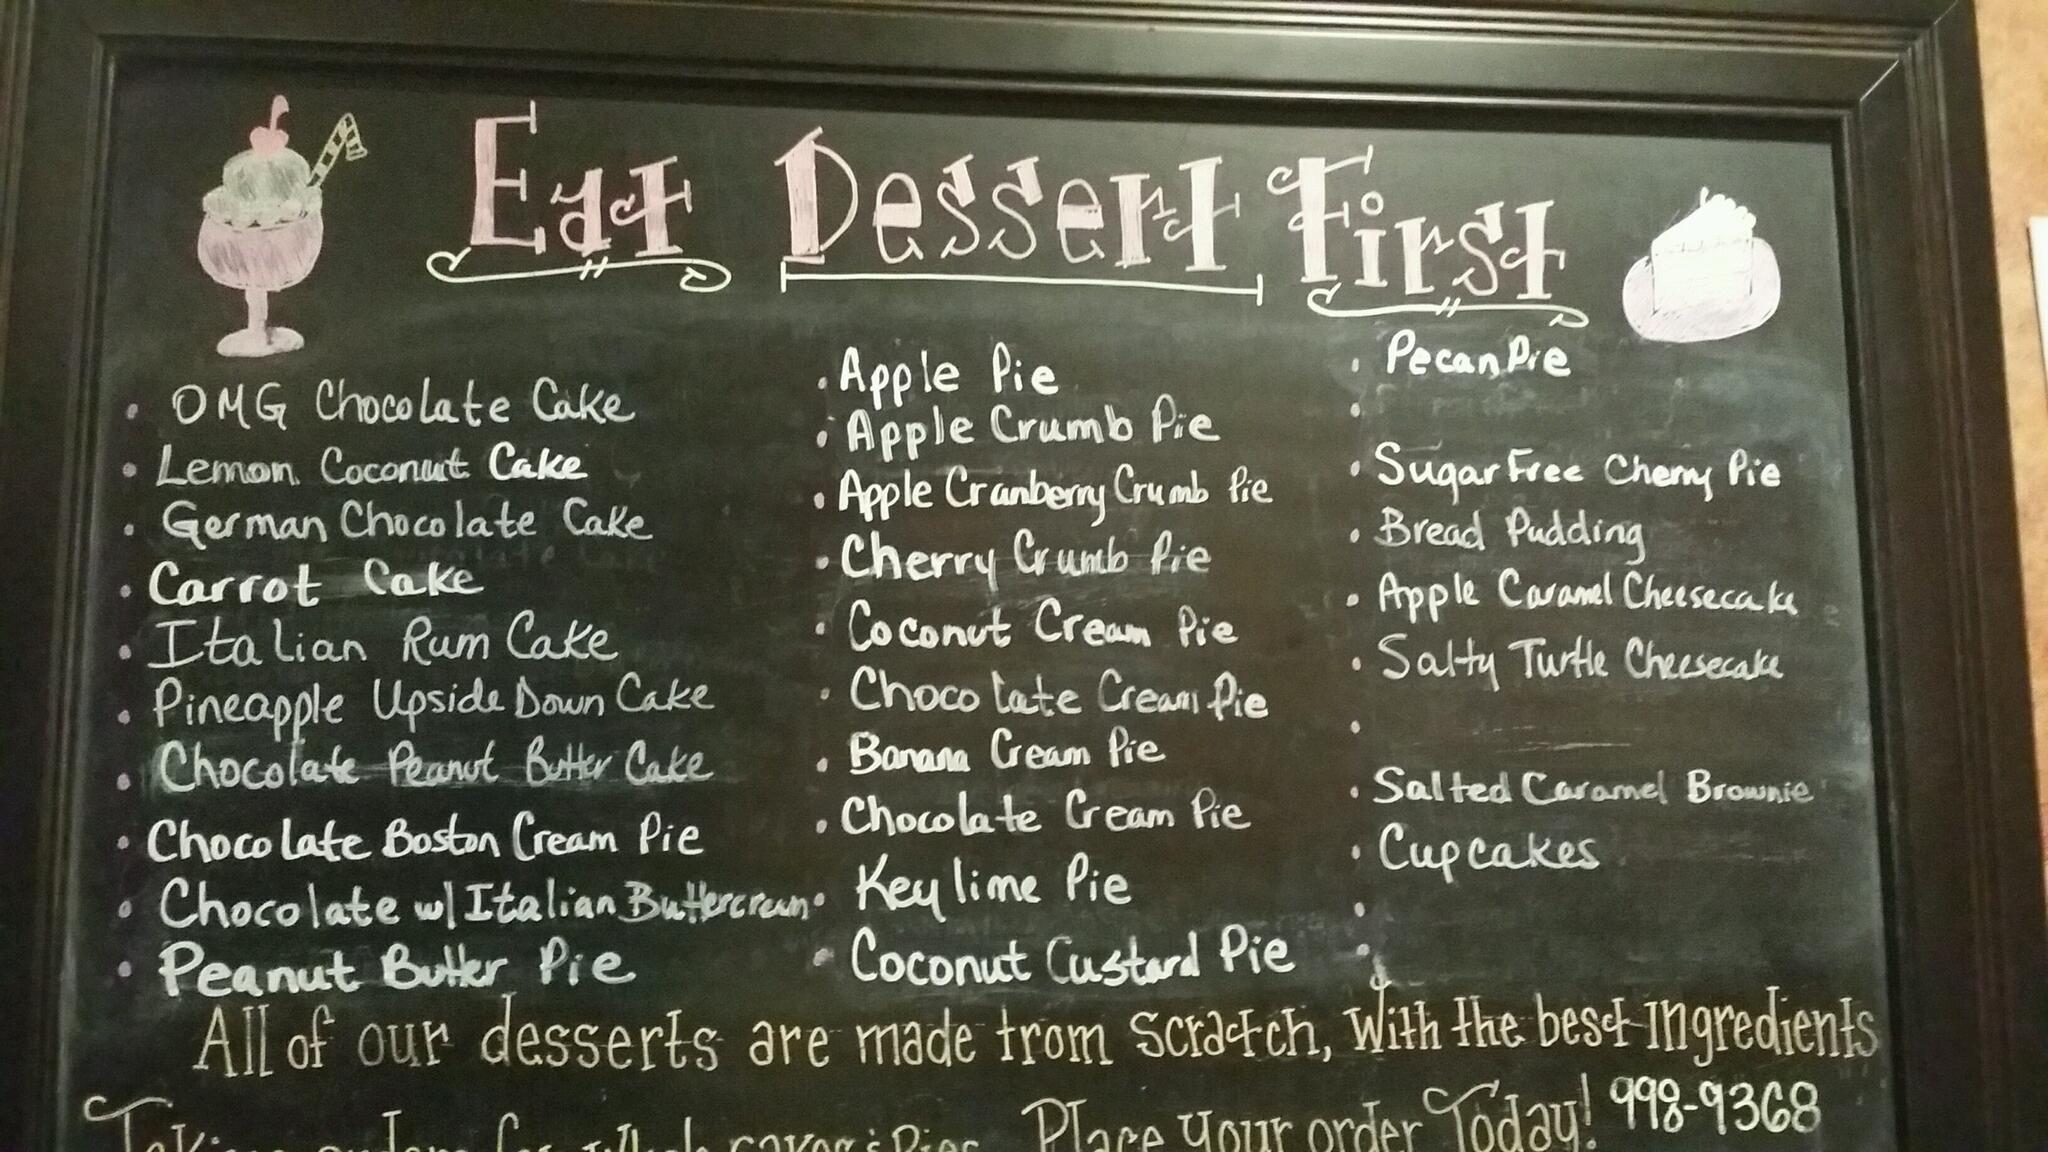 Eat Dessert First
OMG Chocolate Cake
Lemon Coconut Cake
German Chocolate Cake
Carrot Cake
Italian Rum Cake
Pineapple Upside Down Cake
Chocolate Peanut Butter Cake
Chocolate Boston Cream Pie
Chocolate w/ Italian Buttercream
Peanut Butter Pie
Apple Pie
Apple Crumb Pie
Apple Cranberry Crumb Pie
Cherry Crumb Pie
Coconut Cream Pie
Chocolate Cream Pie
Banana Cream Pie
Chocolate Cream Pie
Key lime Pie
Coconut Custard Pie
Pecan Pie
Sugar Free Cherry Pie
Bread Pudding
Apple Caramel Cheesecake
Salty Turtle Cheesecake
Salted Caramel Brownie
Cupcakes
All of our desserts are made from scratch, with the best ingredients
Taking orders for whole cakes & Pies
Place your order Today! 998-9368